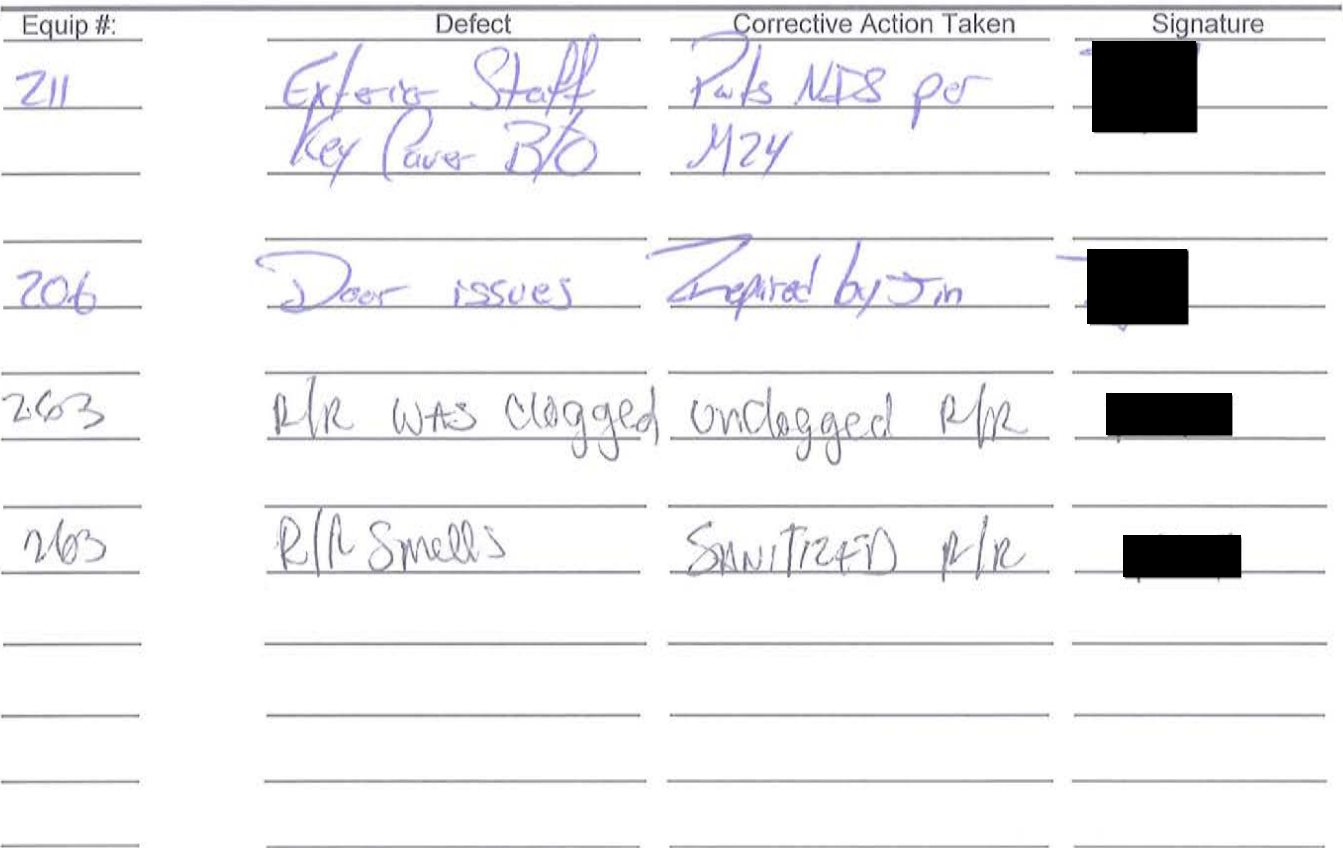 Equip #: Defect Corrective Action Taken Signature
211 Exterior Staff Parts NIS per
Key Cover B/O M24
206 Door issues Irepired by Jim
263 R/R WAS clogged unclogged R/R
263 R/R Smells SANITIZED R/R